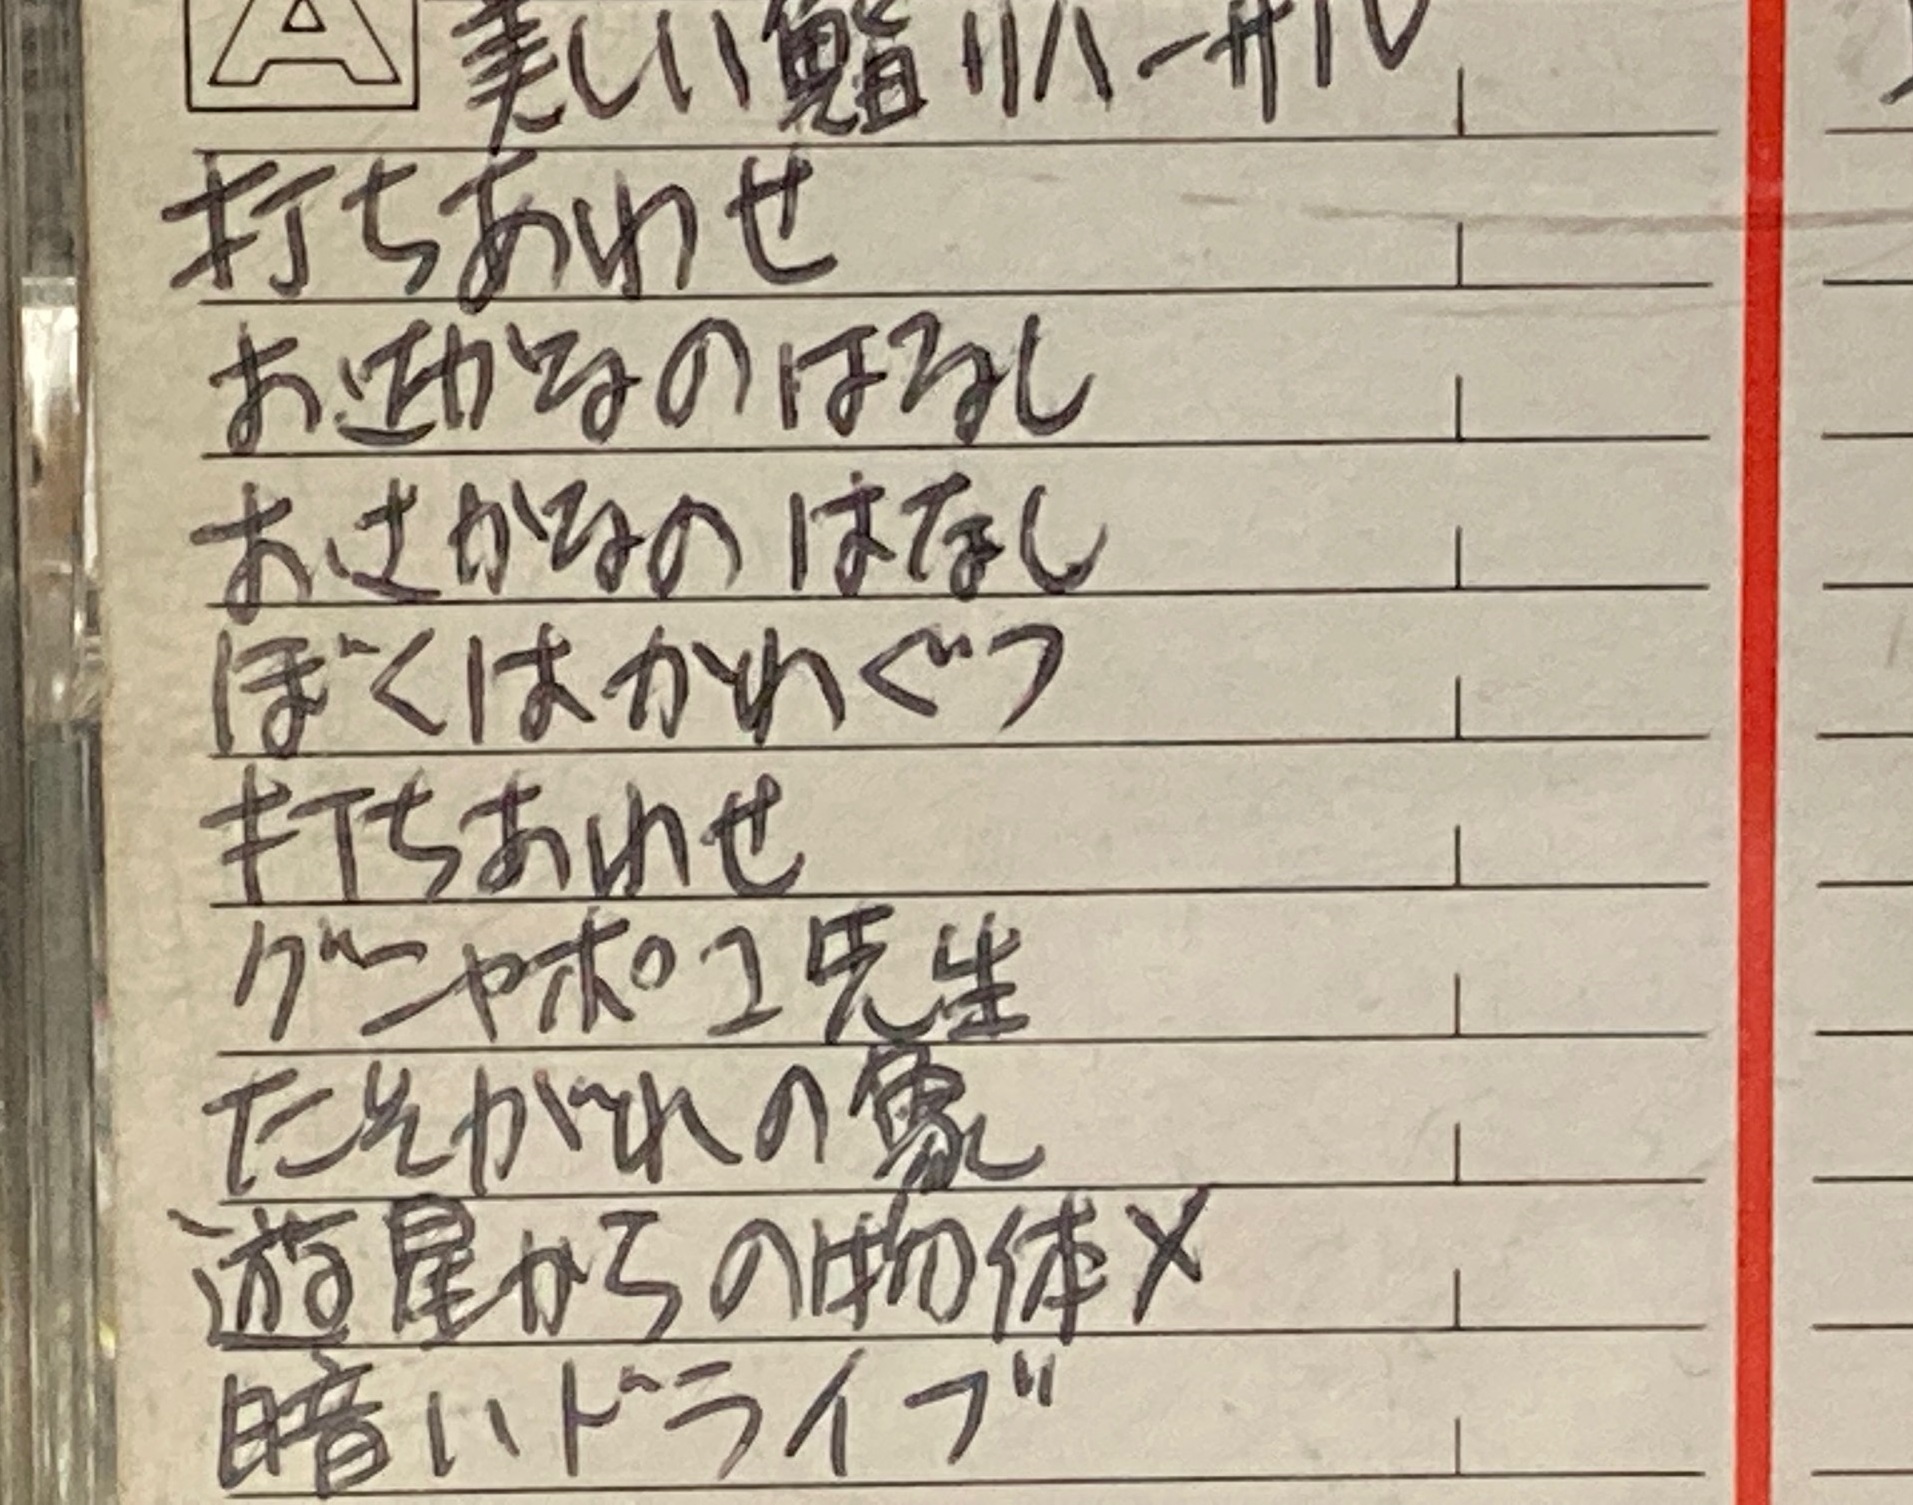 A 美しい鮨リハーサル
打ちあわせ
お近かなのはなし
おさかなのはなし
ぼくはかわぐつ
打ちあわせ
グニャポエ先生
たそがれの象
遊星からの物体X
暗いドライブ